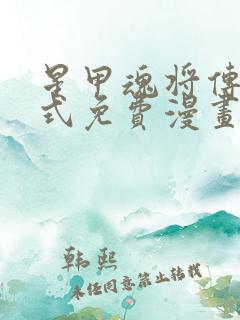 星甲魂将傳
式免費漫畫
韩熙
未经同意禁止转载